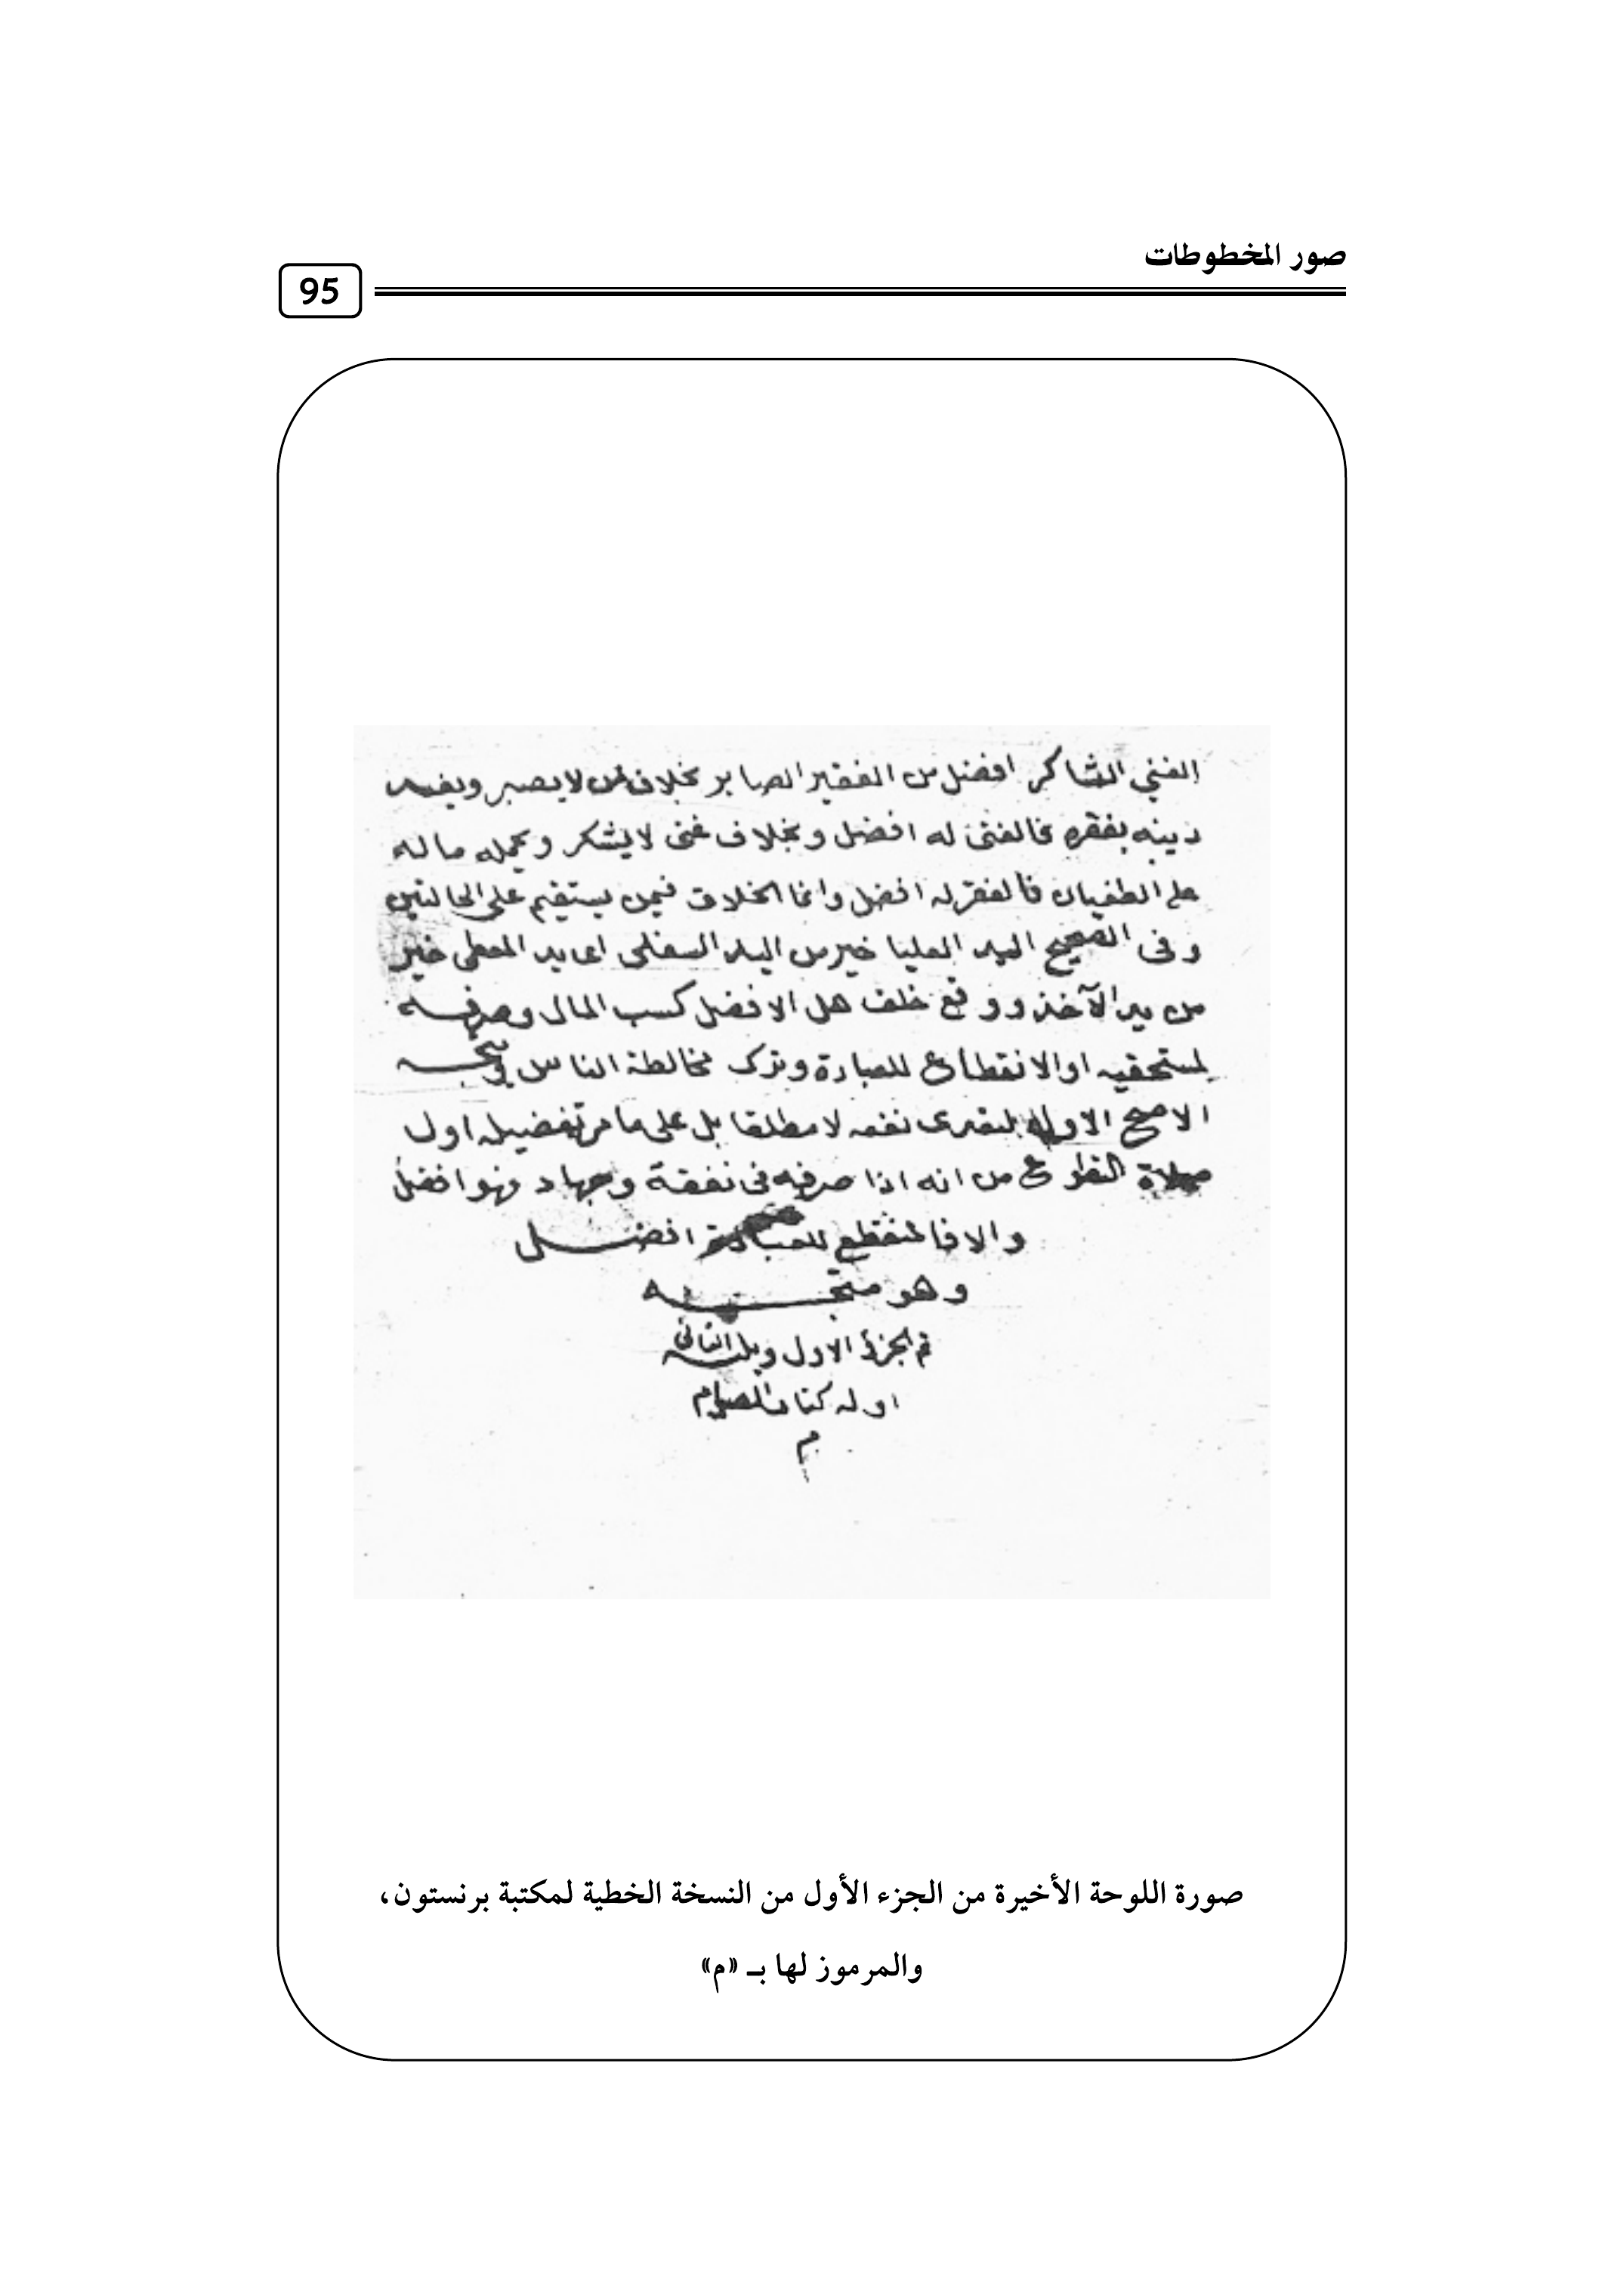 صور المخطوطات
95
الغني الشاكر افضل من الفقير الصابر بخلاف من لا يصبر ويفسد
دينه بفقره فالغنى له افضل وبخلاف غنى لا يشكر ويحمله ماله
على الطغيان فالفقر له افضل وانما الخلاف فيمن يستقيم على الحالتين
وفى الصحيح اليد العليا خير من اليد السفلى اى يد المعطى خير
من يد الآخذ ووقع خلف هل الافضل كسب المال وصرفه
لمستحقيه او الانقطاع للعبادة وترك مخالطة الناس ويتجه
الاصح الاول لتعدى نفعه لا مطلقا بل على ما مر تفصيله اول
صلاة التطوع من انه اذا صرفه فى نفقة وجهاد فهو افضل
والا فالمنقطع للعبادة افضل
وهو متجه
تم الجزء الاول ويليه الثانى
اوله كتاب الصيام
م
صورة اللوحة الأخيرة من الجزء الأول من النسخة الخطية لمكتبة برنستون،
والمرموز لها بـ «م»